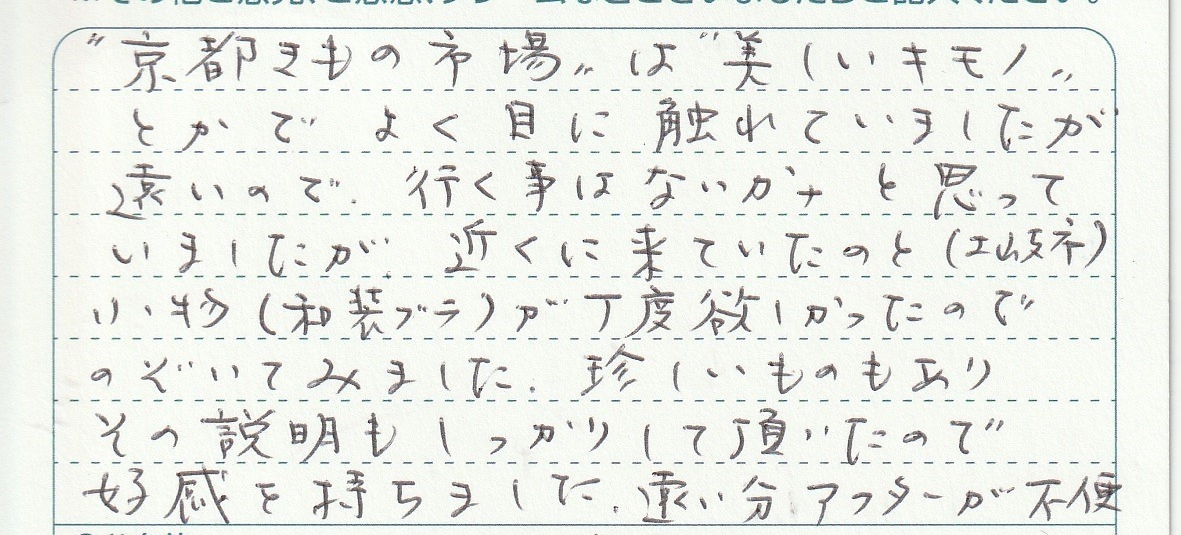 "京都きもの市場"は"美しいキモノ"
とかで よく目に触れていましたが
遠いので、行く事はないかナと思って
いましたが、近くに来ていたのと(土岐市)
小物(和装ブラ)が丁度欲しかったので
のぞいてみました。珍しいものもあり
その説明もしっかりして頂いたので
好感を持ちました。遠い分アフターが不便